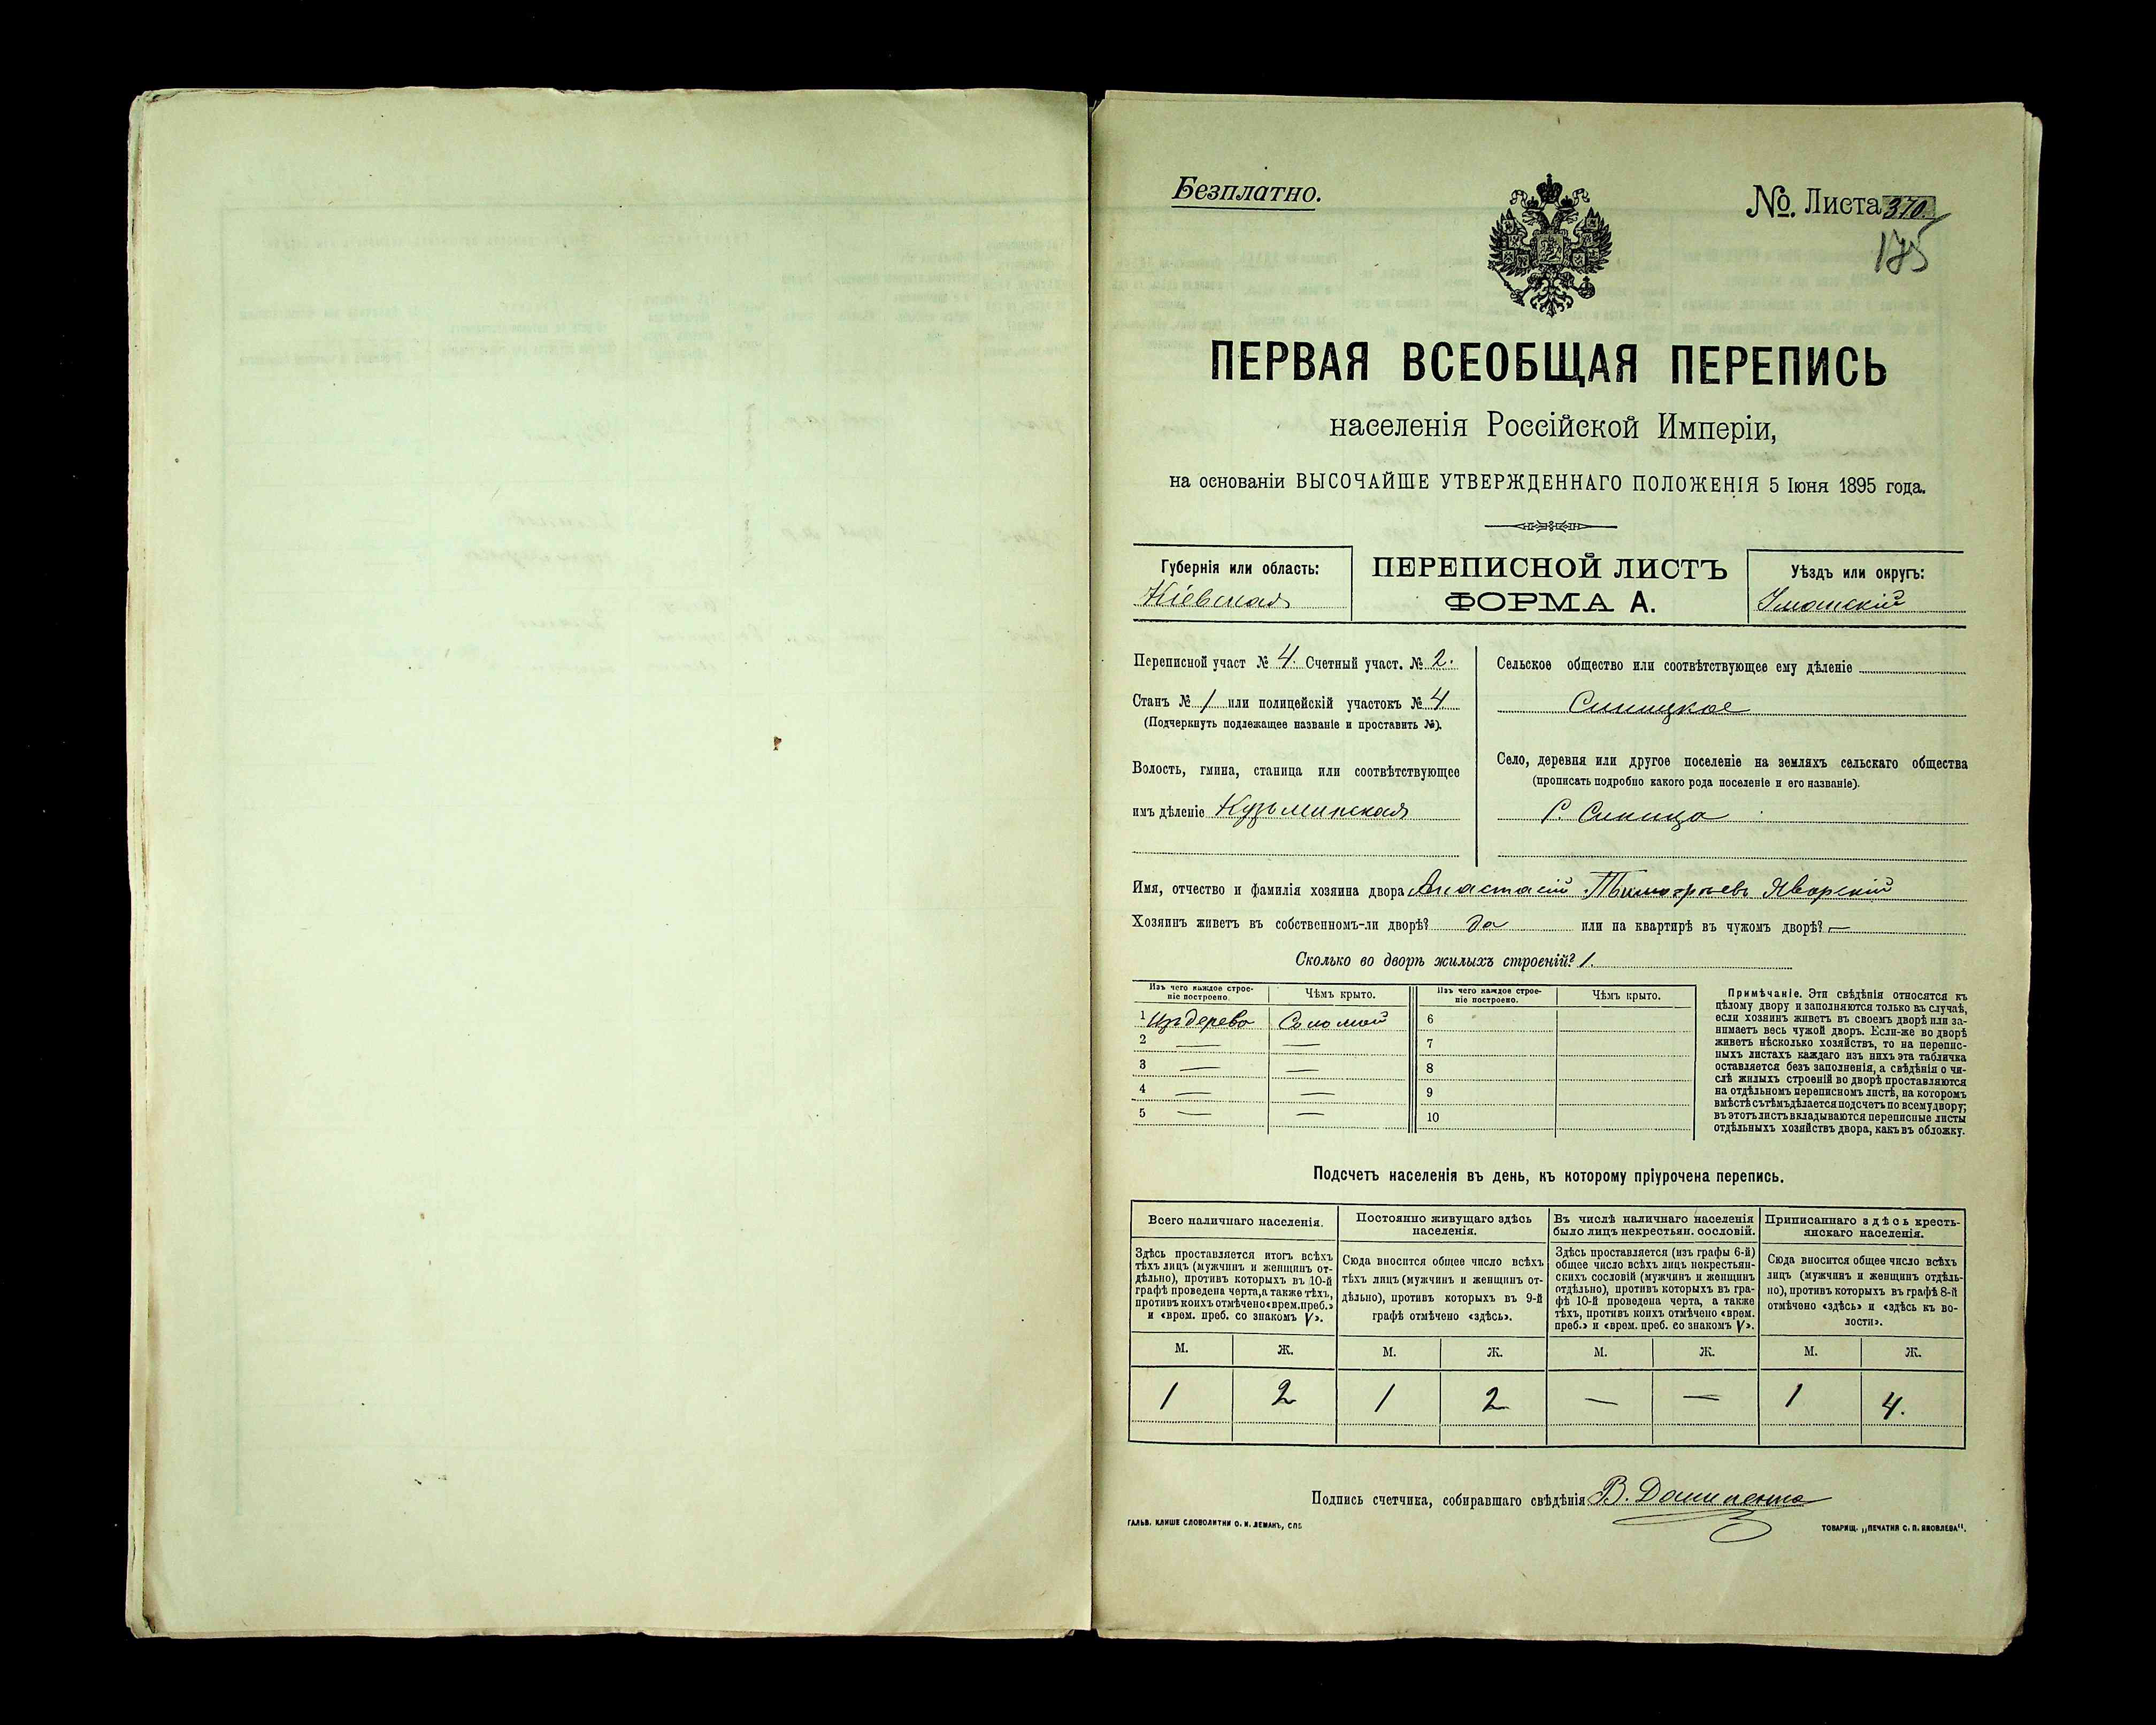 Безплатно.
№. Листа 370.
175
ПЕРВАЯ ВСЕОБЩАЯ ПЕРЕПИСЬ
населенія Россійской Имперіи,
на основаніи ВЫСОЧАЙШЕ УТВЕРЖДЕННАГО ПОЛОЖЕНІЯ 5 Іюня 1895 года.
Губернія или область:
Кіевская
ПЕРЕПИСНОЙ ЛИСТЪ
ФОРМА А.
Уѣздъ или округъ:
Уманскій
Переписной участ № 4. Счетный участ. № 2.
Станъ № 1 или полицейскій участокъ № 4
(Подчеркнуть подлежащее названіе и проставить №).
Волость, гмина, станица или соотвѣтствующее
имъ дѣленіе Кузьминская
Сельское общество или соотвѣтствующее ему дѣленіе
Синицкое
Село, деревня или другое поселеніе на земляхъ сельскаго общества
(прописать подробно какого рода поселеніе и его названіе).
С. Синица
Имя, отчество и фамилія хозяина двора Анастасій Тимофѣевъ Яворскій
Хозяинъ живетъ въ собственномъ-ли дворѣ? да или на квартирѣ въ чужомъ дворѣ? —
Сколько во дворѣ жилыхъ строеній? 1.
Изъ чего каждое строе-
ніе построено.
Чѣмъ крыто.
Изъ чего каждое строе-
ніе построено.
Чѣмъ крыто.
1 Из дерева Соломой 6
2 — — 7
3 — — 8
4 — — 9
5 — — 10
Примѣчаніе. Эти свѣдѣнія относятся къ
цѣлому двору и заполняются только въ случаѣ,
если хозяинъ живетъ въ своемъ дворѣ или за-
нимаетъ весь чужой дворъ. Если-же во дворѣ
живетъ нѣсколько хозяйствъ, то на перепис-
ныхъ листахъ каждаго изъ нихъ эта табличка
оставляется безъ заполненія, а свѣдѣнія о чи-
слѣ жилыхъ строеній во дворѣ проставляются
на отдѣльномъ переписномъ листѣ, на которомъ
вмѣстѣ съ тѣмъ дѣлается подсчетъ по всему двору;
въ этотъ листъ вкладываются переписные листы
отдѣльныхъ хозяйствъ двора, какъ въ обложку.
Подсчетъ населенія въ день, къ которому пріурочена перепись.
Всего наличнаго населенія.
Здѣсь проставляется итогъ всѣхъ
тѣхъ лицъ (мужчинъ и женщинъ от-
дѣльно), противъ которыхъ въ 10-й
графѣ проведена черта, а также тѣхъ,
противъ коихъ отмѣчено «врем. преб.»
и «врем. преб. со знакомъ V».
Постоянно живущаго здѣсь
населенія.
Сюда вносится общее число всѣхъ
тѣхъ лицъ (мужчинъ и женщинъ от-
дѣльно), противъ которыхъ въ 9-й
графѣ отмѣчено «здѣсь».
Въ числѣ наличнаго населенія
было лицъ некрестьян. сословій.
Здѣсь проставляется (изъ графы 6-й)
общее число всѣхъ лицъ некрестьян-
скихъ сословій (мужчинъ и женщинъ
отдѣльно), противъ которыхъ въ гра-
фѣ 10-й проведена черта, а также
тѣхъ, противъ коихъ отмѣчено «врем.
преб.» и «врем. преб. со знакомъ V».
Приписаннаго здѣсь кресть-
янскаго населенія.
Сюда вносится общее число всѣхъ
лицъ (мужчинъ и женщинъ отдѣль-
но), противъ которыхъ въ графѣ 8-й
отмѣчено «здѣсь» и «здѣсь къ во-
лости».
М. Ж. М. Ж. М. Ж. М. Ж.
1 2 1 2 — — 1 4.
Подпись счетчика, собиравшаго свѣдѣнія В.
ГАЛЬВ. КЛИШЕ СЛОВОЛИТНИ О. И. ЛЕМАНЪ, СПБ
ТОВАРИЩ. „ПЕЧАТНЯ С. П. ЯКОВЛЕВА“.